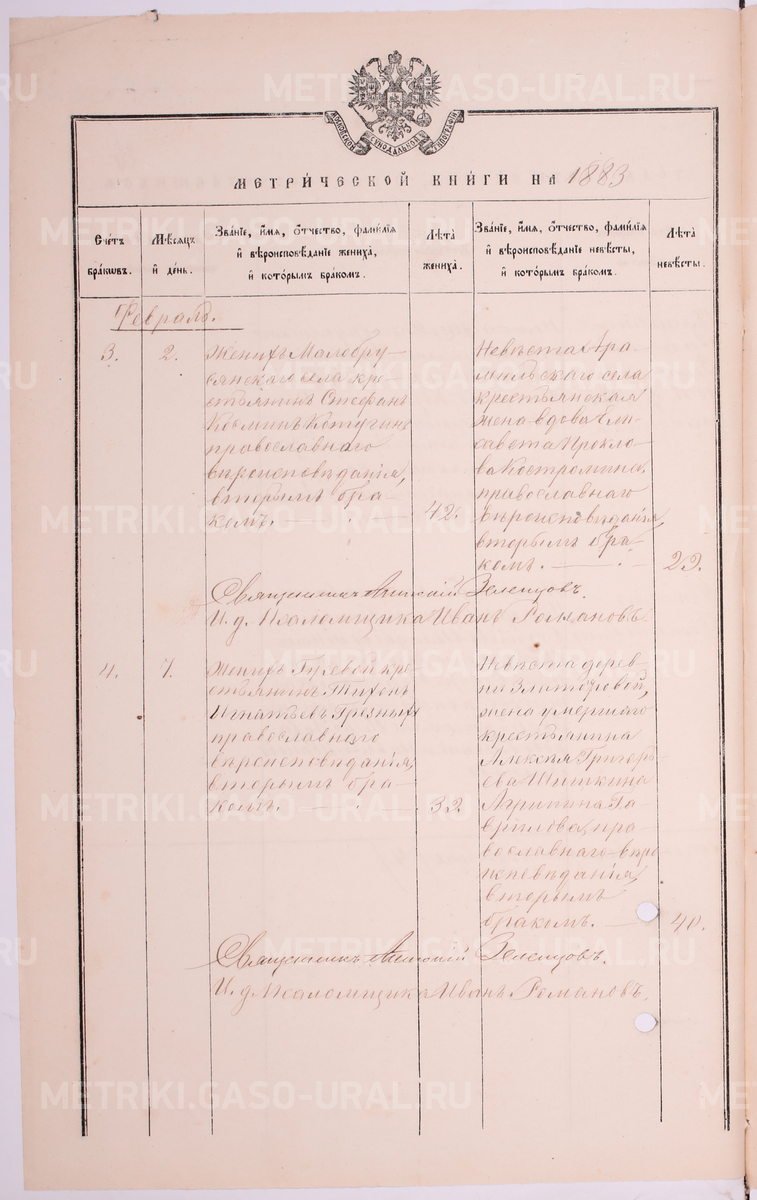 МОСКОВСКОЙ СѴНОДАЛЬНОЙ ТИПОГРАФІИ
МЕТРИ́ЧЕСКОЙ КНИ́ГИ НА 1883
Сче́тъ бра́кωвъ.
Мѣ́сяцъ и҆ де́нь.
Зва́нїе, и҆́мя, ѻ҆́тчество, фами́лїя и҆ вѣроисповѣ́данїе жениха̀, и҆ кото́рымъ бра́комъ.
Лѣ́та жениха̀.
Зва́нїе, и҆́мя, ѻ҆́тчество, фами́лїя и҆ вѣроисповѣ́данїе невѣ́сты, и҆ кото́рымъ бра́комъ.
Лѣ́та невѣ́сты.
Февраль.
3.
2.
Женихъ Малобру-
сянскаго села кре-
стьянинъ Стефанъ
Косминъ Котугинъ
православнаго
вѣроисповѣданія,
вторымъ бра-
комъ.
42.
Невѣста Ара-
мильскаго села
крестьянская
жена вдова Ели-
савета Прокло-
ва Костромина,
православнаго
вѣроисповѣданія,
вторымъ бра-
комъ.
22.
Священникъ Зеленцовъ.
И. д. Псаломщика Иванъ Романовъ.
4.
7.
Женихъ кре-
стьянинъ Тихонъ
Игнатьевъ Грезныхъ
православнаго
вѣроисповѣданія,
вторымъ бра-
комъ.
32.
Невѣста дерев-
ни
жена умершаго
крестьянина
Алексѣя Григорь-
ева Шишкина
Агрипина Га-
врилова, пра-
вославнаго вѣро-
исповѣданія,
вторымъ
бракомъ.
40.
Священникъ Зеленцовъ.
И. д. Псаломщика Иванъ Романовъ.
METRIKI.GASO-URAL.RU